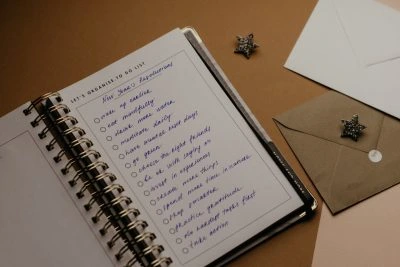 LET'S ORGANISE. TO DO LIST
New Year's Resolutions
wake up earlier
eat mindfully
drink more water
meditate daily
have meatless days
go green
choose the right friends
be ok with saying no
invest in experiences
create more things
spend more time in nature
shop smarter
practice gratitude
do hardest tasks first
take action